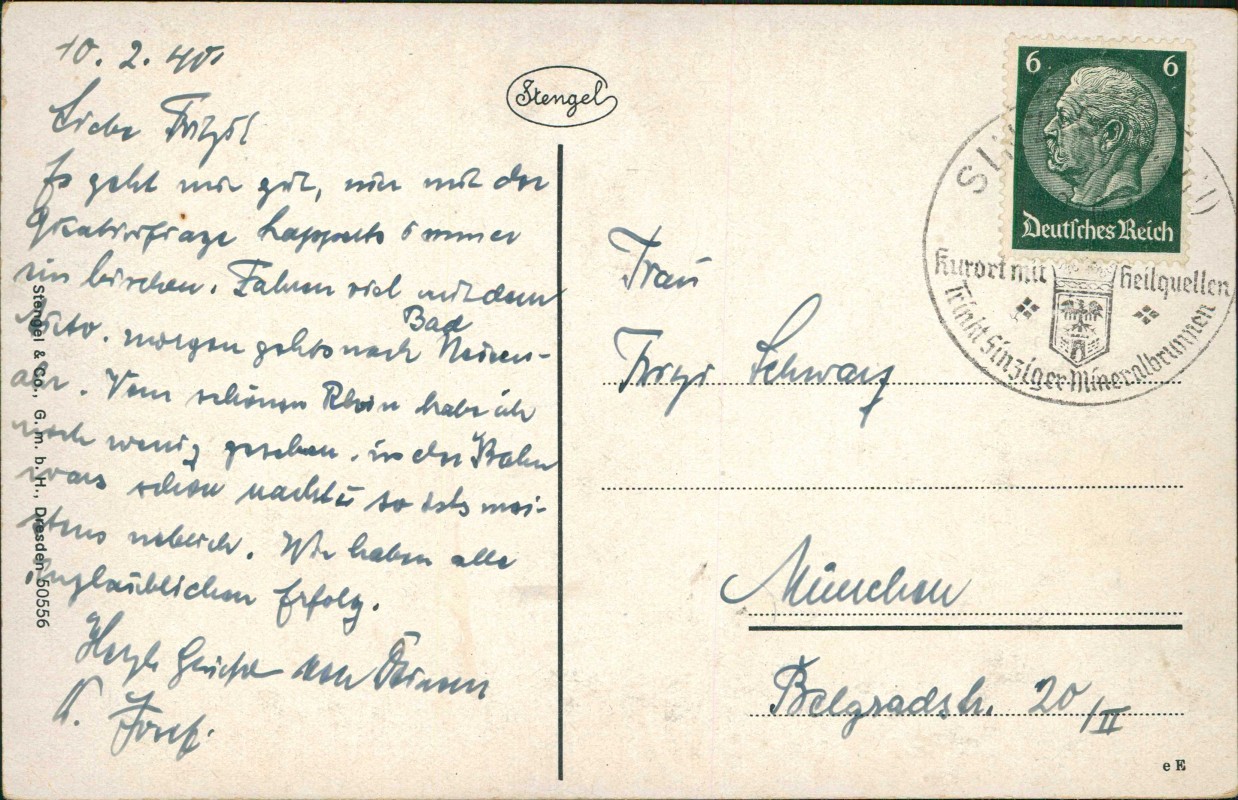 10. 2. 40.
Liebe Fritzi!
Es geht mir gut, nur mit der
Quartierfrage happerts immer
ein bischen. Fahren viel mit dem
Auto. morgen gehts nach Bad Neuen-
ahr. Vom schönen Rhein habe ich
noch wenig gesehen. in der Bahn
wars schon nacht u. so ists mei-
stens neblich. Wir haben alle
unglaublichen Erfolg.
Herzl. Grüße von Deinem
Josef.
Stengel & Co., G. m. b. H., Dresden 50556
Stengel
6 6
Deutsches Reich
Kurort mit Heilquellen
Trinkt Sinziger Mineralbrunnen
Frau
Fritzi Schwarz
München
Belgradstr. 20/II
e E